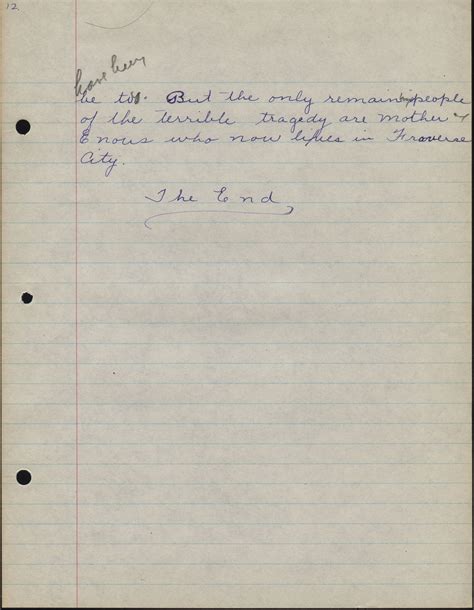 12
have been
be too. But the only remaining people
of the terrible tragedy are mother &
Enous who now lives in Traverse
City.
The End